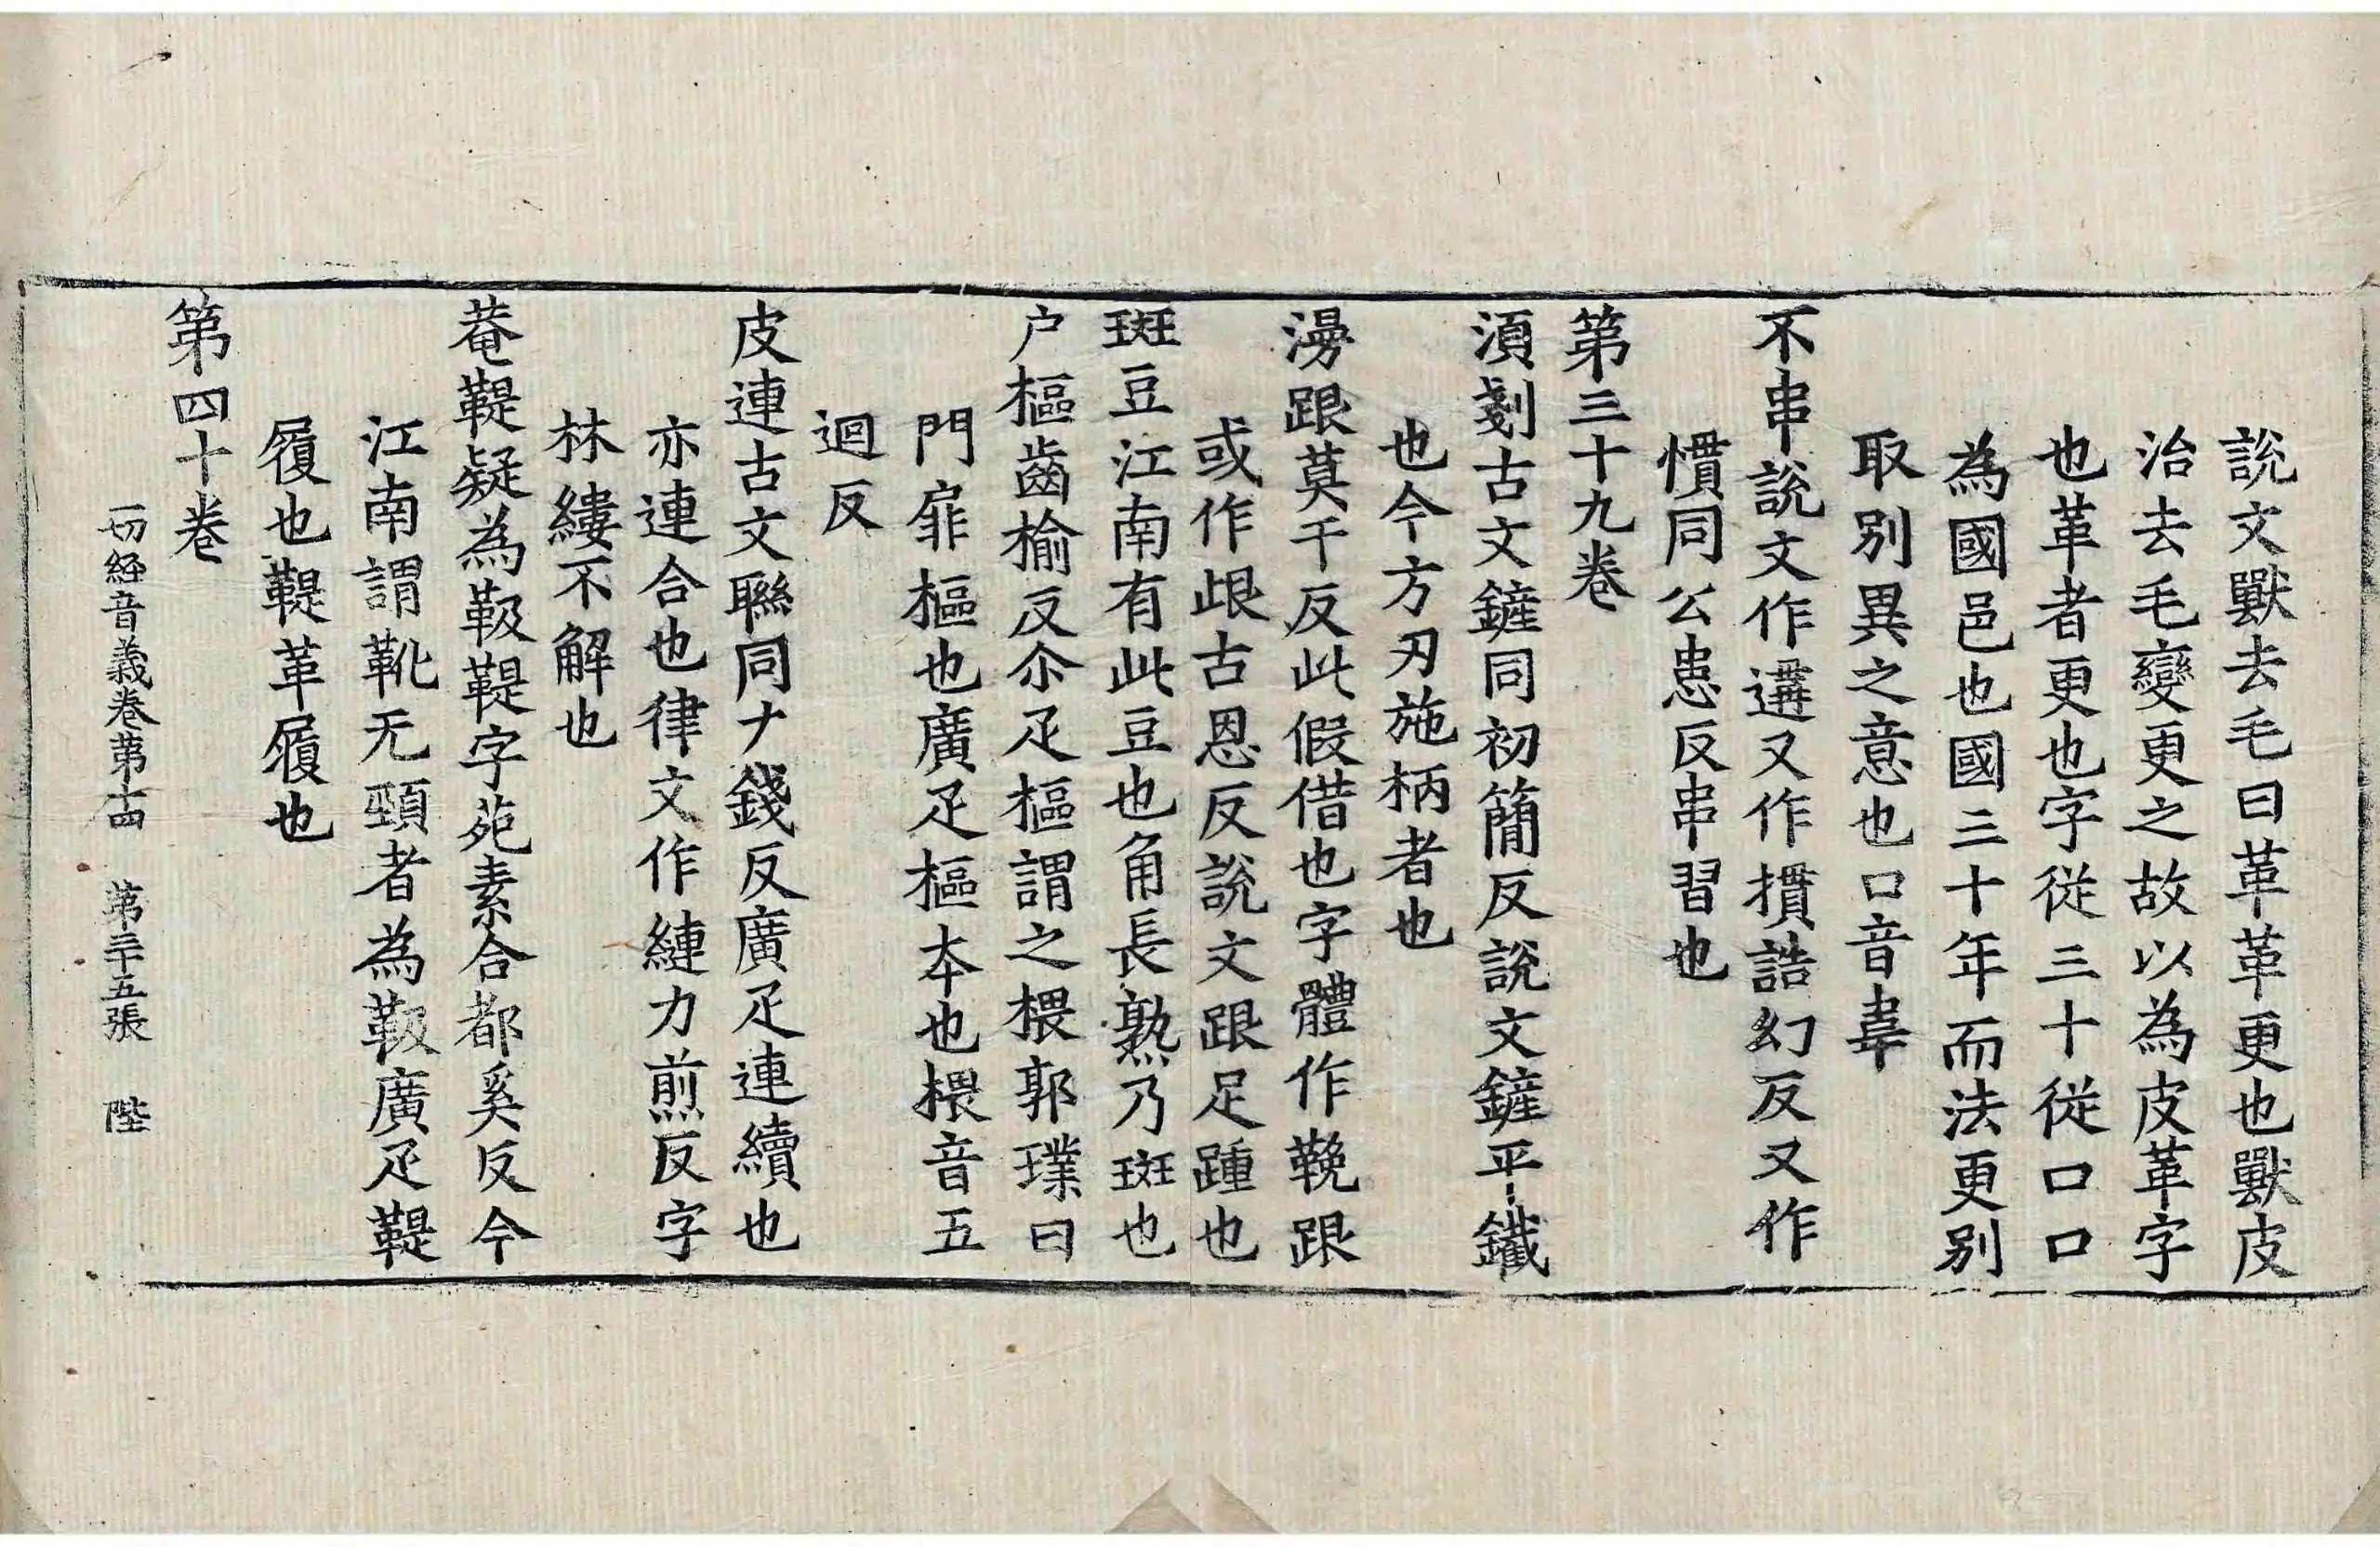 說文獸去毛曰革革更也獸皮
治去毛變更之故以為皮革字
也革者更也字從三十從口口
為國邑也國三十年而法更別
取別異之意也口音韋
不串說文作遦又作摜誥幻反又作
慣同公患反串習也
第三十九卷
湏剗古文鏟同初簡反說文鏟平鐵
也今方刃施柄者也
澷跟莫干反此假借也字體作鞔跟
或作䟴古恩反說文跟足踵也
斑豆江南有此豆也角長熟乃斑也
户樞齒榆反尒疋樞謂之椳郭璞曰
門扉樞也廣疋樞夲也椳音五
迴反
皮連古文聮同力錢反廣疋連續也
亦連合也律文作縺力煎反字
林縷不解也
菴鞮疑為靸鞮字苑素合都奚反今
江南謂靴无頸者為靸廣疋鞮
履也鞮革履也
第四十卷
一切経音義卷第十四 第三十五張 陛